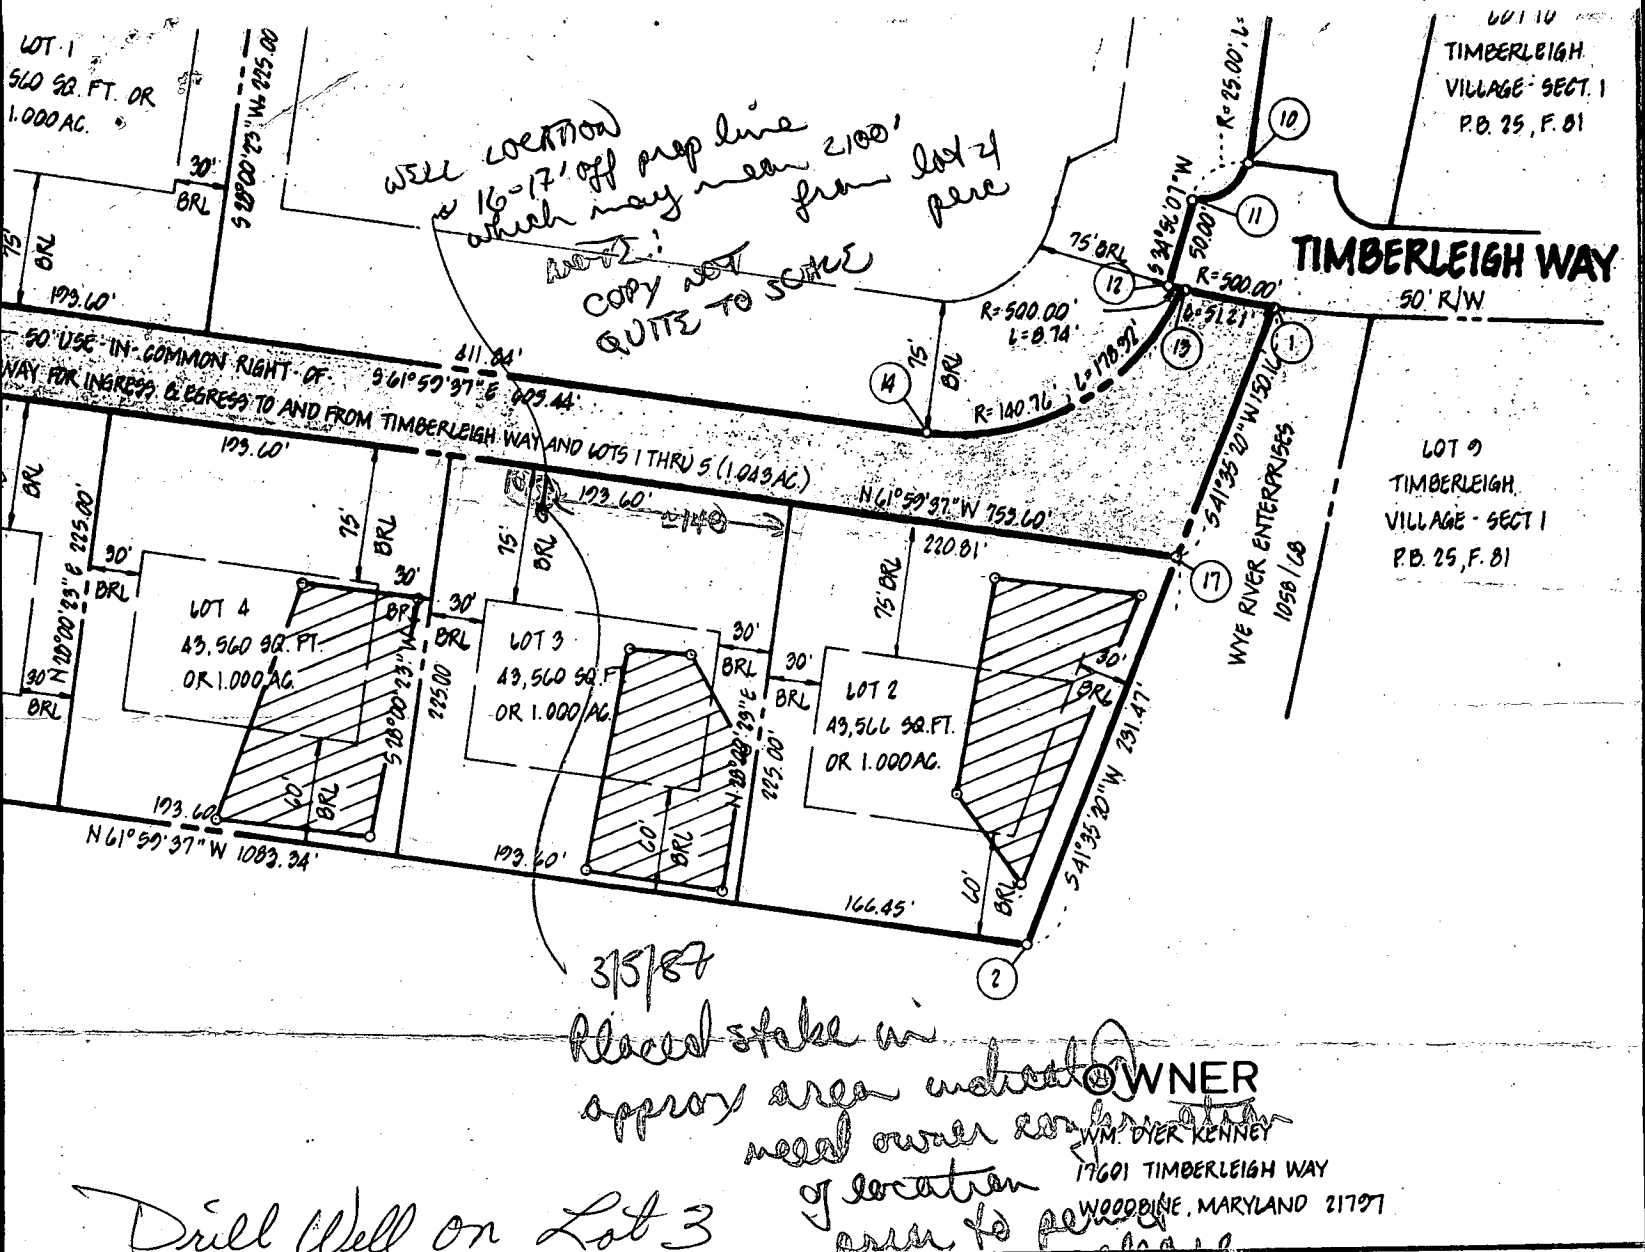 LOT 1
560 SQ. FT. OR
1.000 AC.
S 28°00'23" W 225.00
30'
BRL
75'
BRL
193.60'
WELL LOCATION
16-17' off prop line
which may mean 2100'
from lot 4
perc
NOTE:
COPY NOT
QUITE TO SCALE
R=25.00', L=
LOT 10
TIMBERLEIGH
VILLAGE - SECT. 1
P.B. 25, F. 81
10
11
S 34°56'07" W
50.00'
75' BRL
12
R=500.00'
L=51.21'
TIMBERLEIGH WAY
50' R/W
R=500.00'
L=8.74'
13
1
L=178.92'
R=140.76'
14
75'
BRL
50' USE-IN-COMMON RIGHT-OF-
WAY FOR INGRESS & EGRESS TO AND FROM TIMBERLEIGH WAY AND LOTS 1 THRU 5 (1.043 AC.)
411.84'
S 61°59'37" E 605.44'
S 41°35'20" W 150.16'
WYE RIVER ENTERPRISES
1058/68
LOT 9
TIMBERLEIGH
VILLAGE - SECT 1
P.B. 25, F. 81
193.60'
193.60'
≈140
N 61°59'37" W 753.60'
220.81'
17
BRL
225.00'
N 28°00'23" E
30'
BRL
75'
BRL
30'
BRL
LOT 4
43,560 SQ. FT.
OR 1.000 AC.
30'
BRL
S 28°00'23" W
225.00
30'
BRL
75'
BRL
LOT 3
43,560 SQ. FT
OR 1.000 AC.
30'
BRL
N 28°00'23" E
225.00'
30'
BRL
75' BRL
LOT 2
43,566 SQ. FT.
OR 1.000 AC.
30'
BRL
S 41°35'20" W 231.47'
60'
BRL
60'
BRL
60'
BRL
193.60
N 61°59'37" W 1083.34'
193.60'
166.45'
2
3/5/87
Placed stake in
approx area indicated
need owner confirmation
of location
prior to permit
release
OWNER
WM. DYER KENNEY
17601 TIMBERLEIGH WAY
WOODBINE, MARYLAND 21797
Drill Well on Lot 3